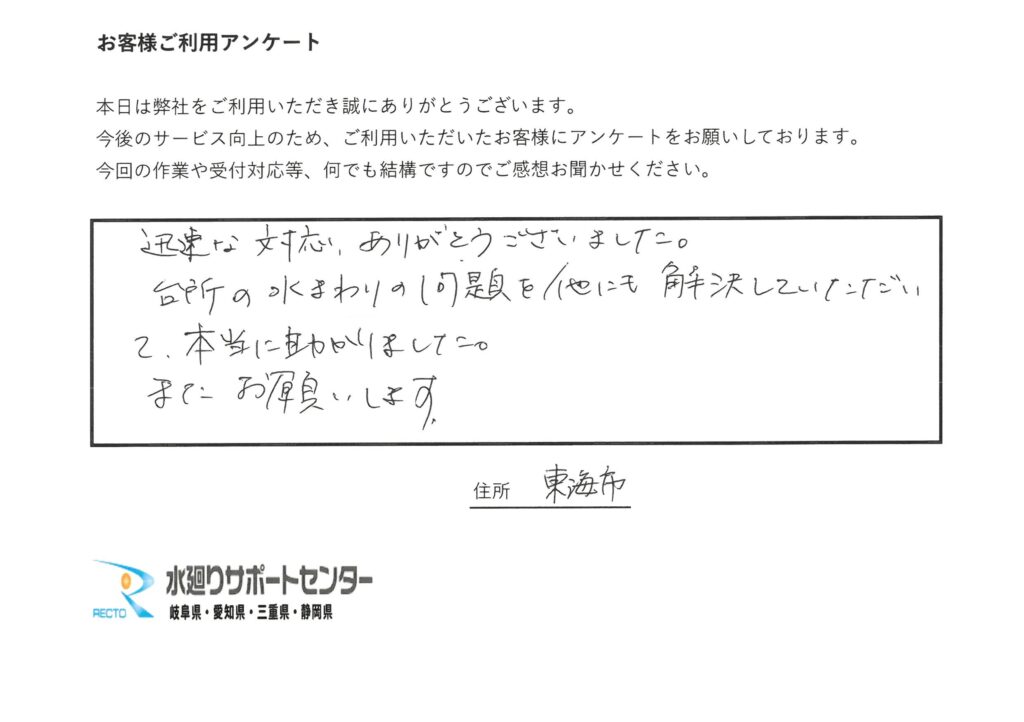 お客様ご利用アンケート
本日は弊社をご利用いただき誠にありがとうございます。
今後のサービス向上のため、ご利用いただいたお客様にアンケートをお願いしております。
今回の作業や受付対応等、何でも結構ですのでご感想お聞かせください。
迅速な対応、ありがとうございました。
台所の水まわりの問題を他にも解決していただい
て、本当に助かりました。
またお願いします。
住所 東海市
RECTO 水廻りサポートセンター
岐阜県・愛知県・三重県・静岡県